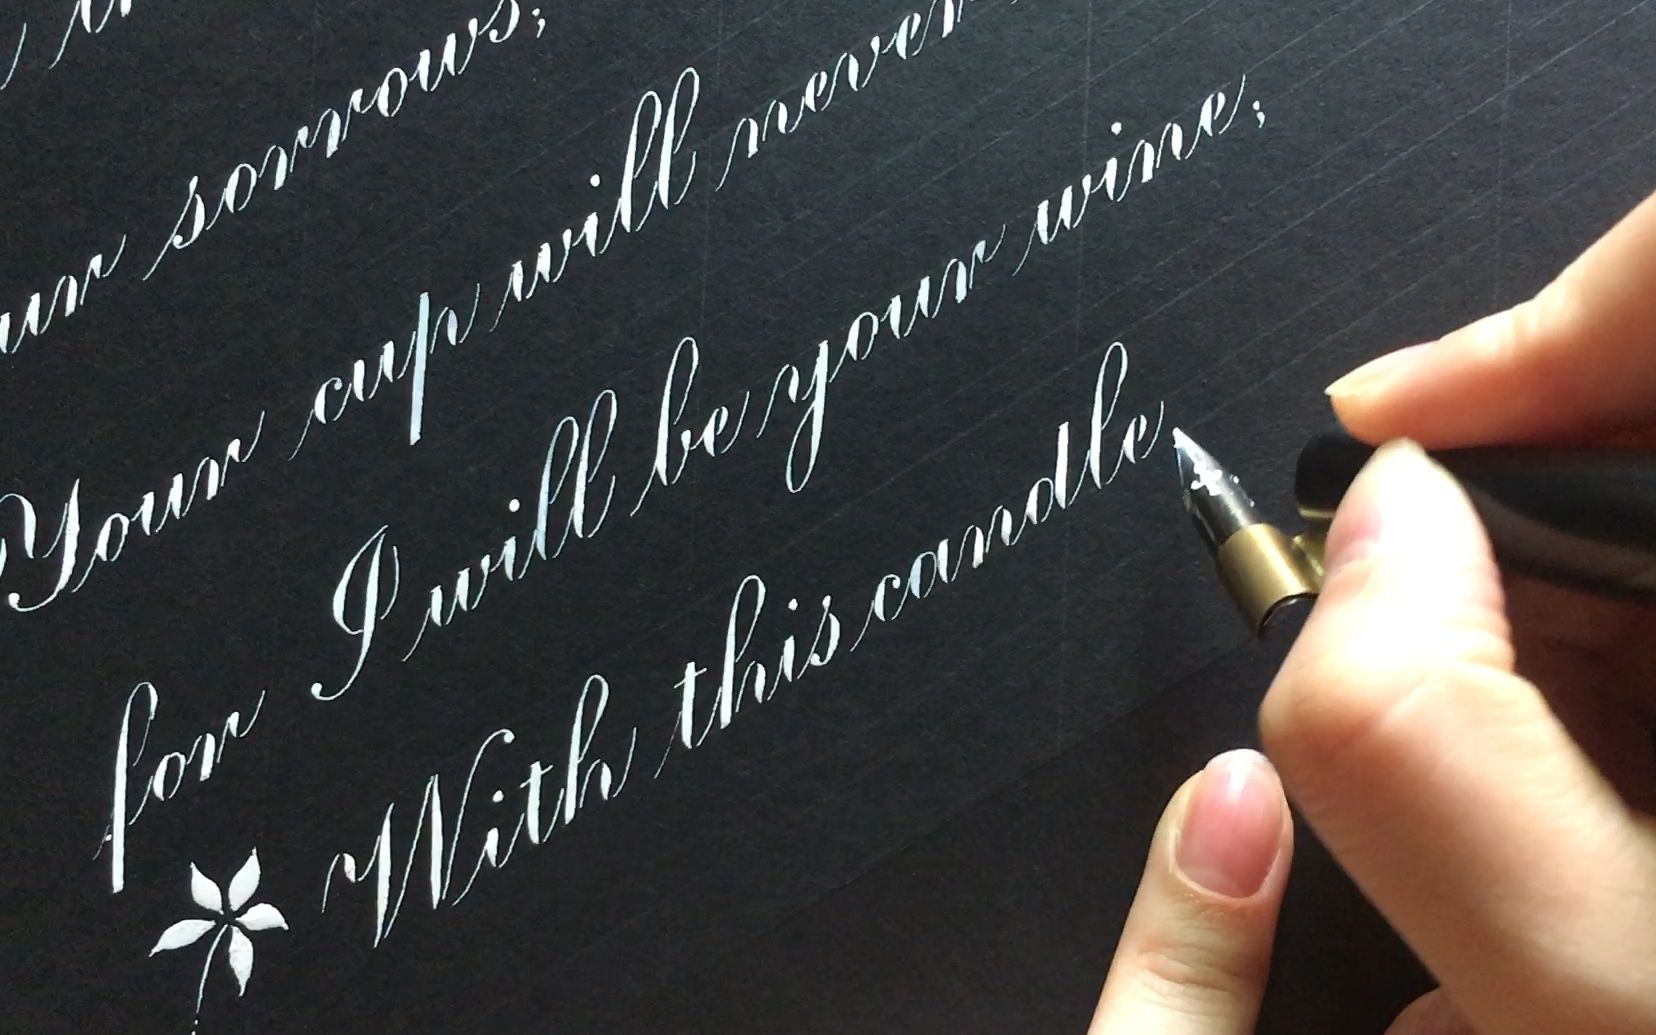 sorrows;
Your cup will never
for I will be your wine;
With this candle